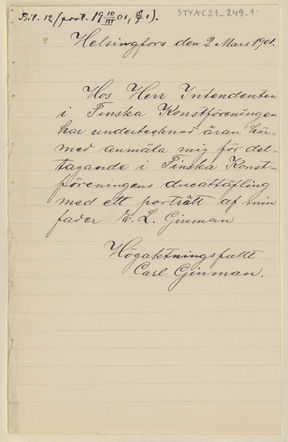 Bil. 12 (prot. 19 10/III 01, § 1).
STYAC21_249_1.
Helsingfors den 2 Mars 1901.
Hos Herr Intendenten
i Finska Konstföreningen
har undertecknad äran här-
med anmäla mig för del-
tagande i Finska Konst-
föreningens ducattäfling
med ett porträtt af min
fader E. L. Ginman
Högaktningsfullt
Carl Ginman.